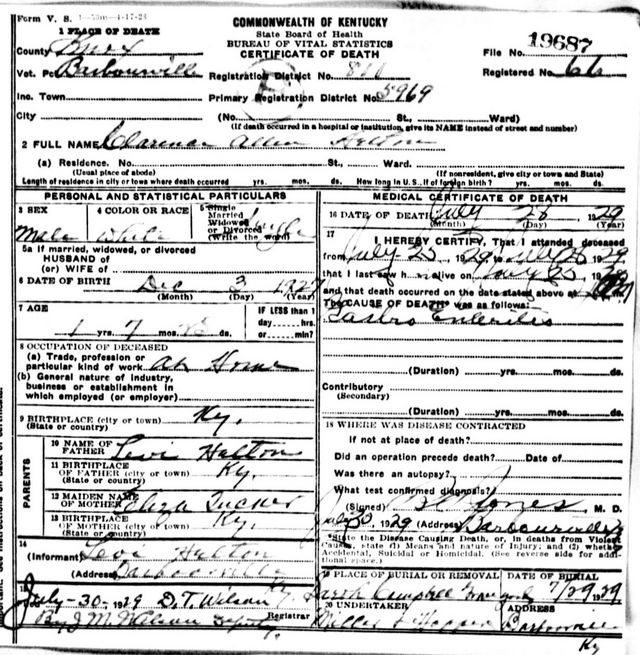 Form V. S.
COMMONWEALTH OF KENTUCKY
State Board of Health
BUREAU OF VITAL STATISTICS
CERTIFICATE OF DEATH
1 PLACE OF DEATH
County Knox
File No. 19687
Vot. Pct. Barbourville Registration District No.
Registered No.
Inc. Town Primary Registration District No. 5969
City (No. St., Ward)
(If death occurred in a hospital or institution, give its NAME instead of street and number)
2 FULL NAME Allen
(a) Residence. No. St., Ward.
(Usual place of abode) (If nonresident, give city or town and State)
Length of residence in city or town where death occurred yrs. mos. ds. How long in U.S., if of foreign birth? yrs. mos. ds.
PERSONAL AND STATISTICAL PARTICULARS
3 SEX
Male
4 COLOR OR RACE
White
5 Single
Married
Widowed
or Divorced
(Write the word)
Single
5a If married, widowed, or divorced
HUSBAND of
(or) WIFE of
6 DATE OF BIRTH Dec 3 1927
(Month) (Day) (Year)
7 AGE
1 yrs. 7 mos. ds.
IF LESS than 1
day, hrs.
or min?
8 OCCUPATION OF DECEASED
(a) Trade, profession or
particular kind of work at Home
(b) General nature of industry,
business or establishment in
which employed (or employer)
9 BIRTHPLACE (city or town) Ky.
(State or country)
PARENTS
10 NAME OF
FATHER Levi Halton
11 BIRTHPLACE
OF FATHER (city or town) Ky.
(State or country)
12 MAIDEN NAME
OF MOTHER Eliza Tucker
13 BIRTHPLACE
OF MOTHER (city or town) Ky.
(State or country)
14
(Informant) Levi Halton
(Address) Barbourville
15
July-30-1929 D.T. Wilson
By J M Wilson Deputy Registrar
MEDICAL CERTIFICATE OF DEATH
16 DATE OF DEATH July 28 1929
(Month) (Day) (Year)
17
I HEREBY CERTIFY, That I attended deceased
from July 25, 1929 to 1929
that I last saw h alive on July 25, 19
and that death occurred on the date stated above at
The CAUSE OF DEATH was as follows:
Gastro Enteritis
(Duration) yrs. mos. ds.
Contributory
(Secondary)
(Duration) yrs. mos. ds.
18 WHERE WAS DISEASE CONTRACTED
If not at place of death?
Did an operation precede death? Date of
Was there an autopsy?
What test confirmed diagnosis?
(Signed) Jones M. D.
July 30 1929 (Address) Barbourville
*State the Disease Causing Death, or, in deaths from Violent
Causes, state (1) Means and nature of Injury; and (2) whether
Accidental, Suicidal or Homicidal. (See reverse side for addi-
tional space.)
19 PLACE OF BURIAL OR REMOVAL
Campbell
DATE OF BURIAL
7/29 1929
20 UNDERTAKER
Miller
ADDRESS
Barbourville
Ky